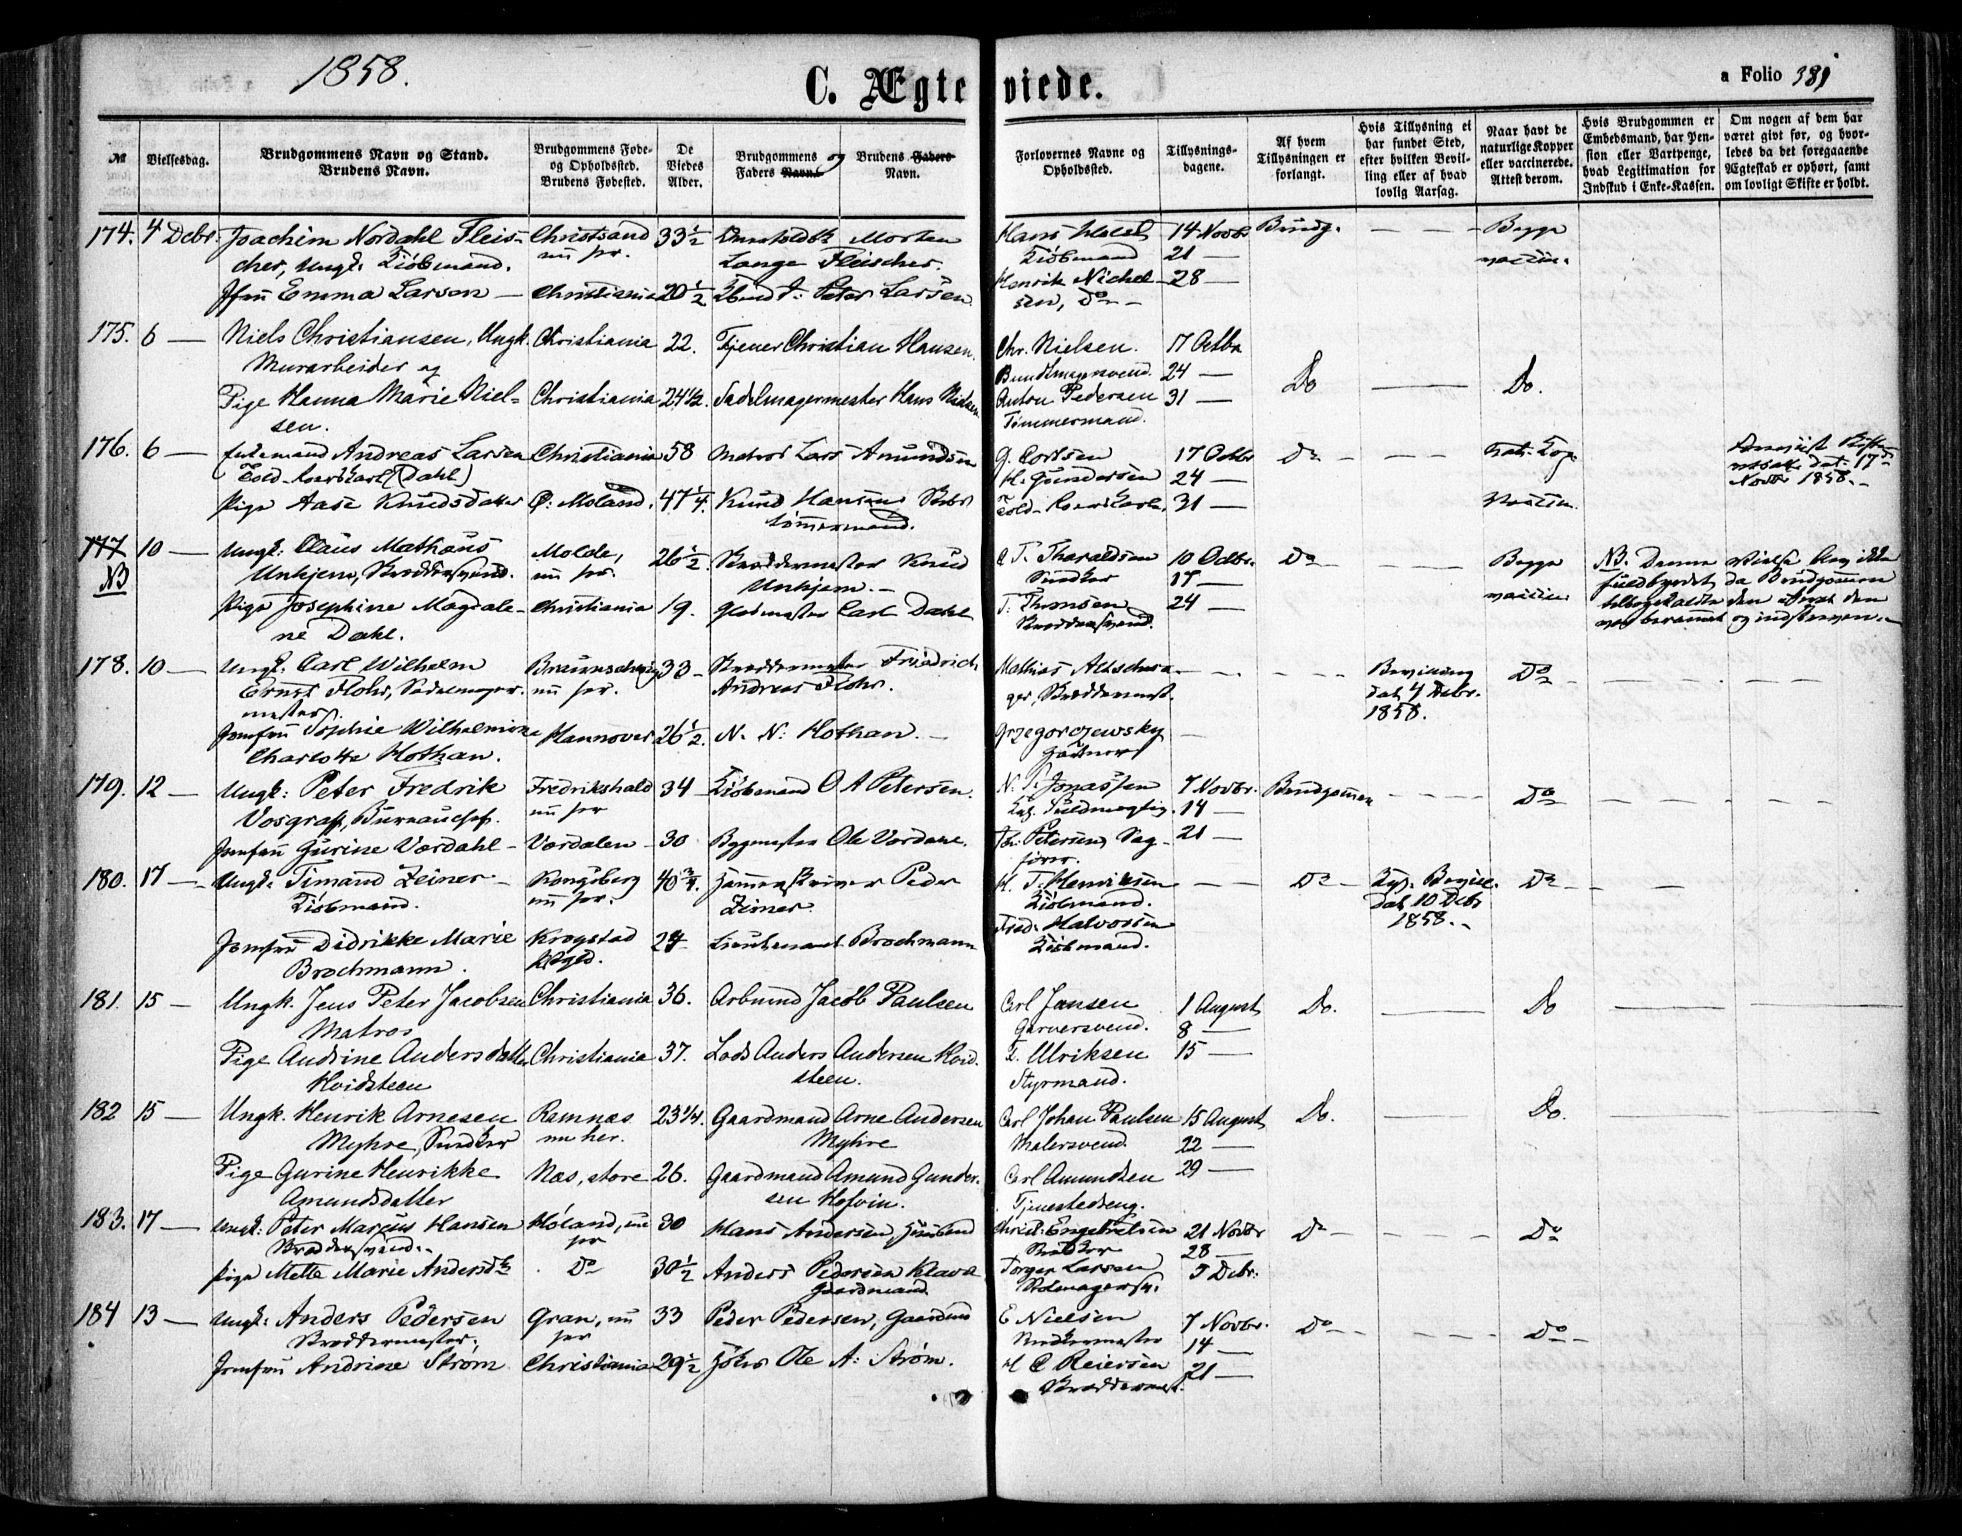 1858.
C. Ægteviede.
a Folio 381
No
Vielsesdag.
Brudgommens Navn og Stand.
Brudens Navn.
Brudgommens Føde- og Opholdssted.
Brudens Fødested.
De Viedes Alder.
Brudgommens og Brudens Faders
Faders Navn. Navn.
Forlovernes Navne og Opholdssted.
Tillysningsdagene.
Af hvem Tillysningen er forlangt.
Hvis Tillysning ei har fundet Sted, efter hvilken Bevilling eller af hvad lovlig Aarsag.
Naar havt de naturlige Kopper eller vaccinerede. Attest derom.
Hvis Brudgommen er Embedsmand, har Pension eller Vartpenge, hvad Legitimation for Indskud i Enke-Kassen.
Om nogen af dem har været givt før, og hvorledes da det foregaaende Ægteskab er ophørt, samt om lovligt Skifte er holdt.
174. 4 Decbr. Joachim Nordahl Fleis- Christsand 33½ Morten Hans 14 Novbr Brudg. — — Begge
cher, Ungk. Kiøbmand. nu her. Lange Fleischer. Kiøbmand 21 — vaccin.
Jfru Emma Larsen — Christiania 20½ Peter Larsen Henrik Nichel- 28 —
sen, Do
175. 6 — Niels Christiansen, Ungk. Christiania 22. Tjener Christian Hansen. Chr. Nielsen. 17 Octbr
Murarbeider og Bundtmagersvend. 24 — Do — Do.
Pige Hanna Marie Niel- Christiania 24½. Sadelmagermester Hans Nielsen Anton Pedersen 31 —
sen. Tømmermand.
176. 6 — Enkemand Andreas Larsen Christiania 58 Matros Lars Amundsen G. Corsen 17 Octbr Do — — Nat. Kop.
Told- (Dahl) H. Gundersen 24 — 17de
Pige Aase Knudsdatter Ø: Moland. 47¼. Knud Hansen Told- 31 — Vaccin. Novbr 1858.
tømmermand.
177 10 — Ungk: Claus Mathæus Molde, 26½ Skræddermester Knud C T. Tharaldsen 10 Octbr. Do — — Begge NB. Denne Vielse blev ikke
NB Unhjem, Skræddersvend. nu her. Unhjem. — Snedker 17 — vaccin. fuldbyrdet da Brudgommen
Pige Josephine Magdale- Christiania 19. Carl Dahl T. Thomsen 24 — tilbagekaldte den den
ne Dahl. Skræddersvend. var berammet og indskreven.
178. 10 — Ungk. Carl Wilhelm Braunschweig 33 — Skræddermester Friedrich Mathias Altschwa- — Bevilling Do — — —
Ernst Flohr, Sadelmager- nu her. Andreas Flohr. ger, Skræddermest. dat 4 Decbr.
mester. 1858.
Jomfru Sophie Wilhelmine Hannover 26½. N. N. Hothan. — Grzegorczewsky —
Charlotte Hothan. Gartner
179. 12 — Ungk: Peter Fredrik Fredrikshald 34 — Kiøbmand O A Petersen. N. P. Jonassen 7 Novbr. Brudgommen — — — Do — — —
Vosgraff, Bureauchef. nu her Fuldmægtig. 14 —
Jomfru Gurine Værdahl — Værdalen — 30 Bygmester Ole Værdahl. Petersen, Sag- 21 —
fører.
180. 17 — Ungk. Timand Zeiner — Kongsberg 40¾. Peder H. T. Henriksen — — Do — Kgl. Bevill. Do — —
Kiøbmand. nu her. Zeiner. Kiøbmand. dat 10 Decbr
Fred. Halvorsen 1858. —
Jomfru Didrikke Marie Krogstad 27 Lieutenant Brochmann Kiøbmand.
Brochmann. Prgld.
181. 15 — Ungk. Jens Peter Jacobsen Christiania 36. Arbmnd Jacob Paulsen Carl Jansen 1 August Do. — Do —
Matros Garversvend. 8 —
Pige Andrine Andersdatter Christiania 37. Lods Anders Andersen Hvid- T. Ulriksen 15 —
Hvidsteen steen. Styrmand.
182 15 — Ungk. Henrik Arnesen Ramnæs 23¼. Gaardmand Arne Andersen Carl Johan Paulsen 15 August Do. — Do. —
Myhre, Snedker nu her. Myhre Malersvend. 22 —
Pige Gurine Henrikke Næs, store 26. Gaardmand Amund Gunder- Carl Amundsen 29 —
Amundsdatter sen Hofvin. Tjenestedreng.
183. 17 — Ungk: Peter Marcus Hansen Høland, nu 30 Hans Andersen, Huusmd Christ. Engebretsen 21 Novbr Do — — Do —
Skræddersvend. her Snedker 28 —
Pige Mette Marie Andersdtr Do 30½ Anders Pedersen Torger Larsen 5 Decbr.
Gaardmand.
184 13 — Ungk: Anders Pedersen Gran, nu 33 Peder Pedersen, Gaardmd E Nielsen 7 Novbr. Do — — — Do —
Skræddermester. her Snedkermester 14 —
Jomfru Andrine Strøm Christiania 29½ Ole A. Strøm. H C Reiersen 21 —
Skræddermest.